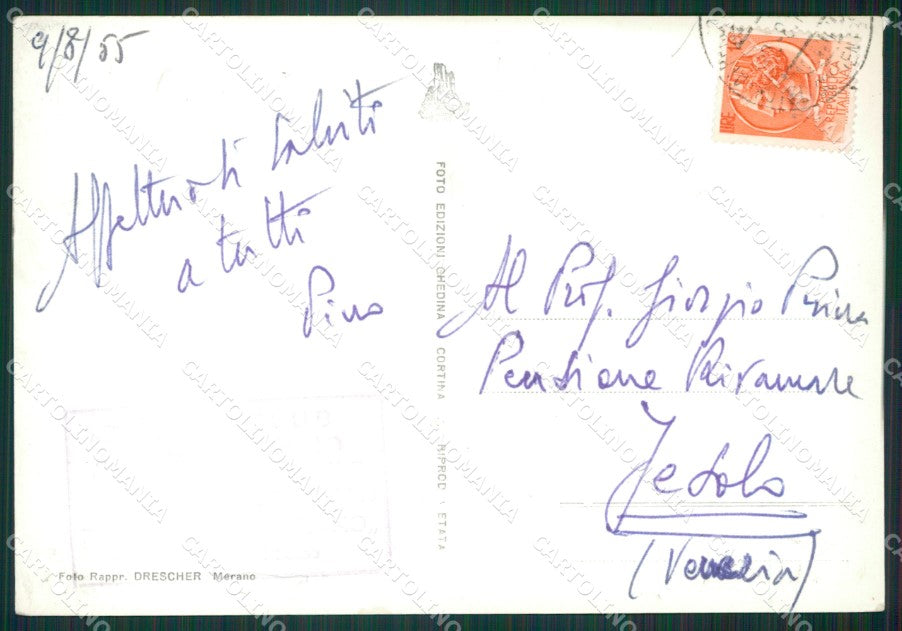 9/8/55
Affettuosi saluti
a tutti
Pino
FOTO EDIZIONI GHEDINA CORTINA
Foto Rappr. DRESCHER Merano
REPUBBLICA
ITALIANA
LIRE
Al Prof. Giorgio
Pensione Rivamare
Jesolo
(Venezia)
CARTOLINOMANIA